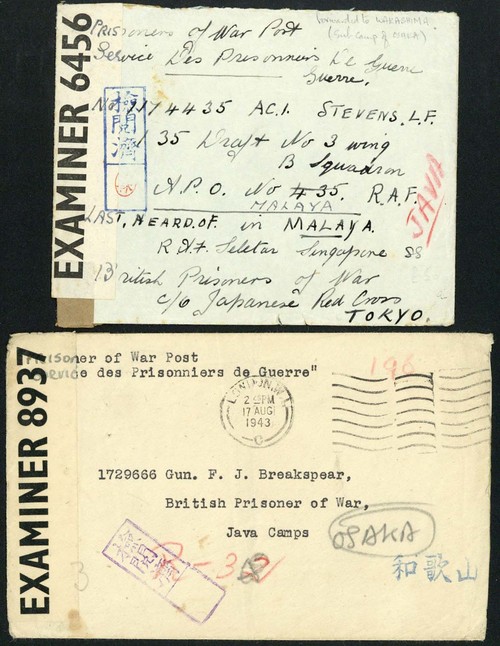 Forwarded to WAKAYAMA
(Sub Camp of OSAKA)
Prisoners of War Post
Service Des Prisonniers De Guerre
Guerre.
EXAMINER 6456
檢閲濟
No. 1174435 AC.1. STEVENS. L.F.
35 Draft No 3 wing
B Squadron
A.P.O. No 35. R.A.F.
MALAYA
JAVA
LAST, HEARD. OF. in MALAYA.
R.A.F. Seletar Singapore
British Prisoners of War
c/o Japanese Red Cross
TOKYO.
EXAMINER 8937
Prisoner of War Post
Service des Prisonniers de Guerre"
196
LONDON. W.1.
2 PM
17 AUG
1943
C
1729666 Gun. F. J. Breakspear,
British Prisoner of War,
Java Camps
OSAKA
和歌山
3